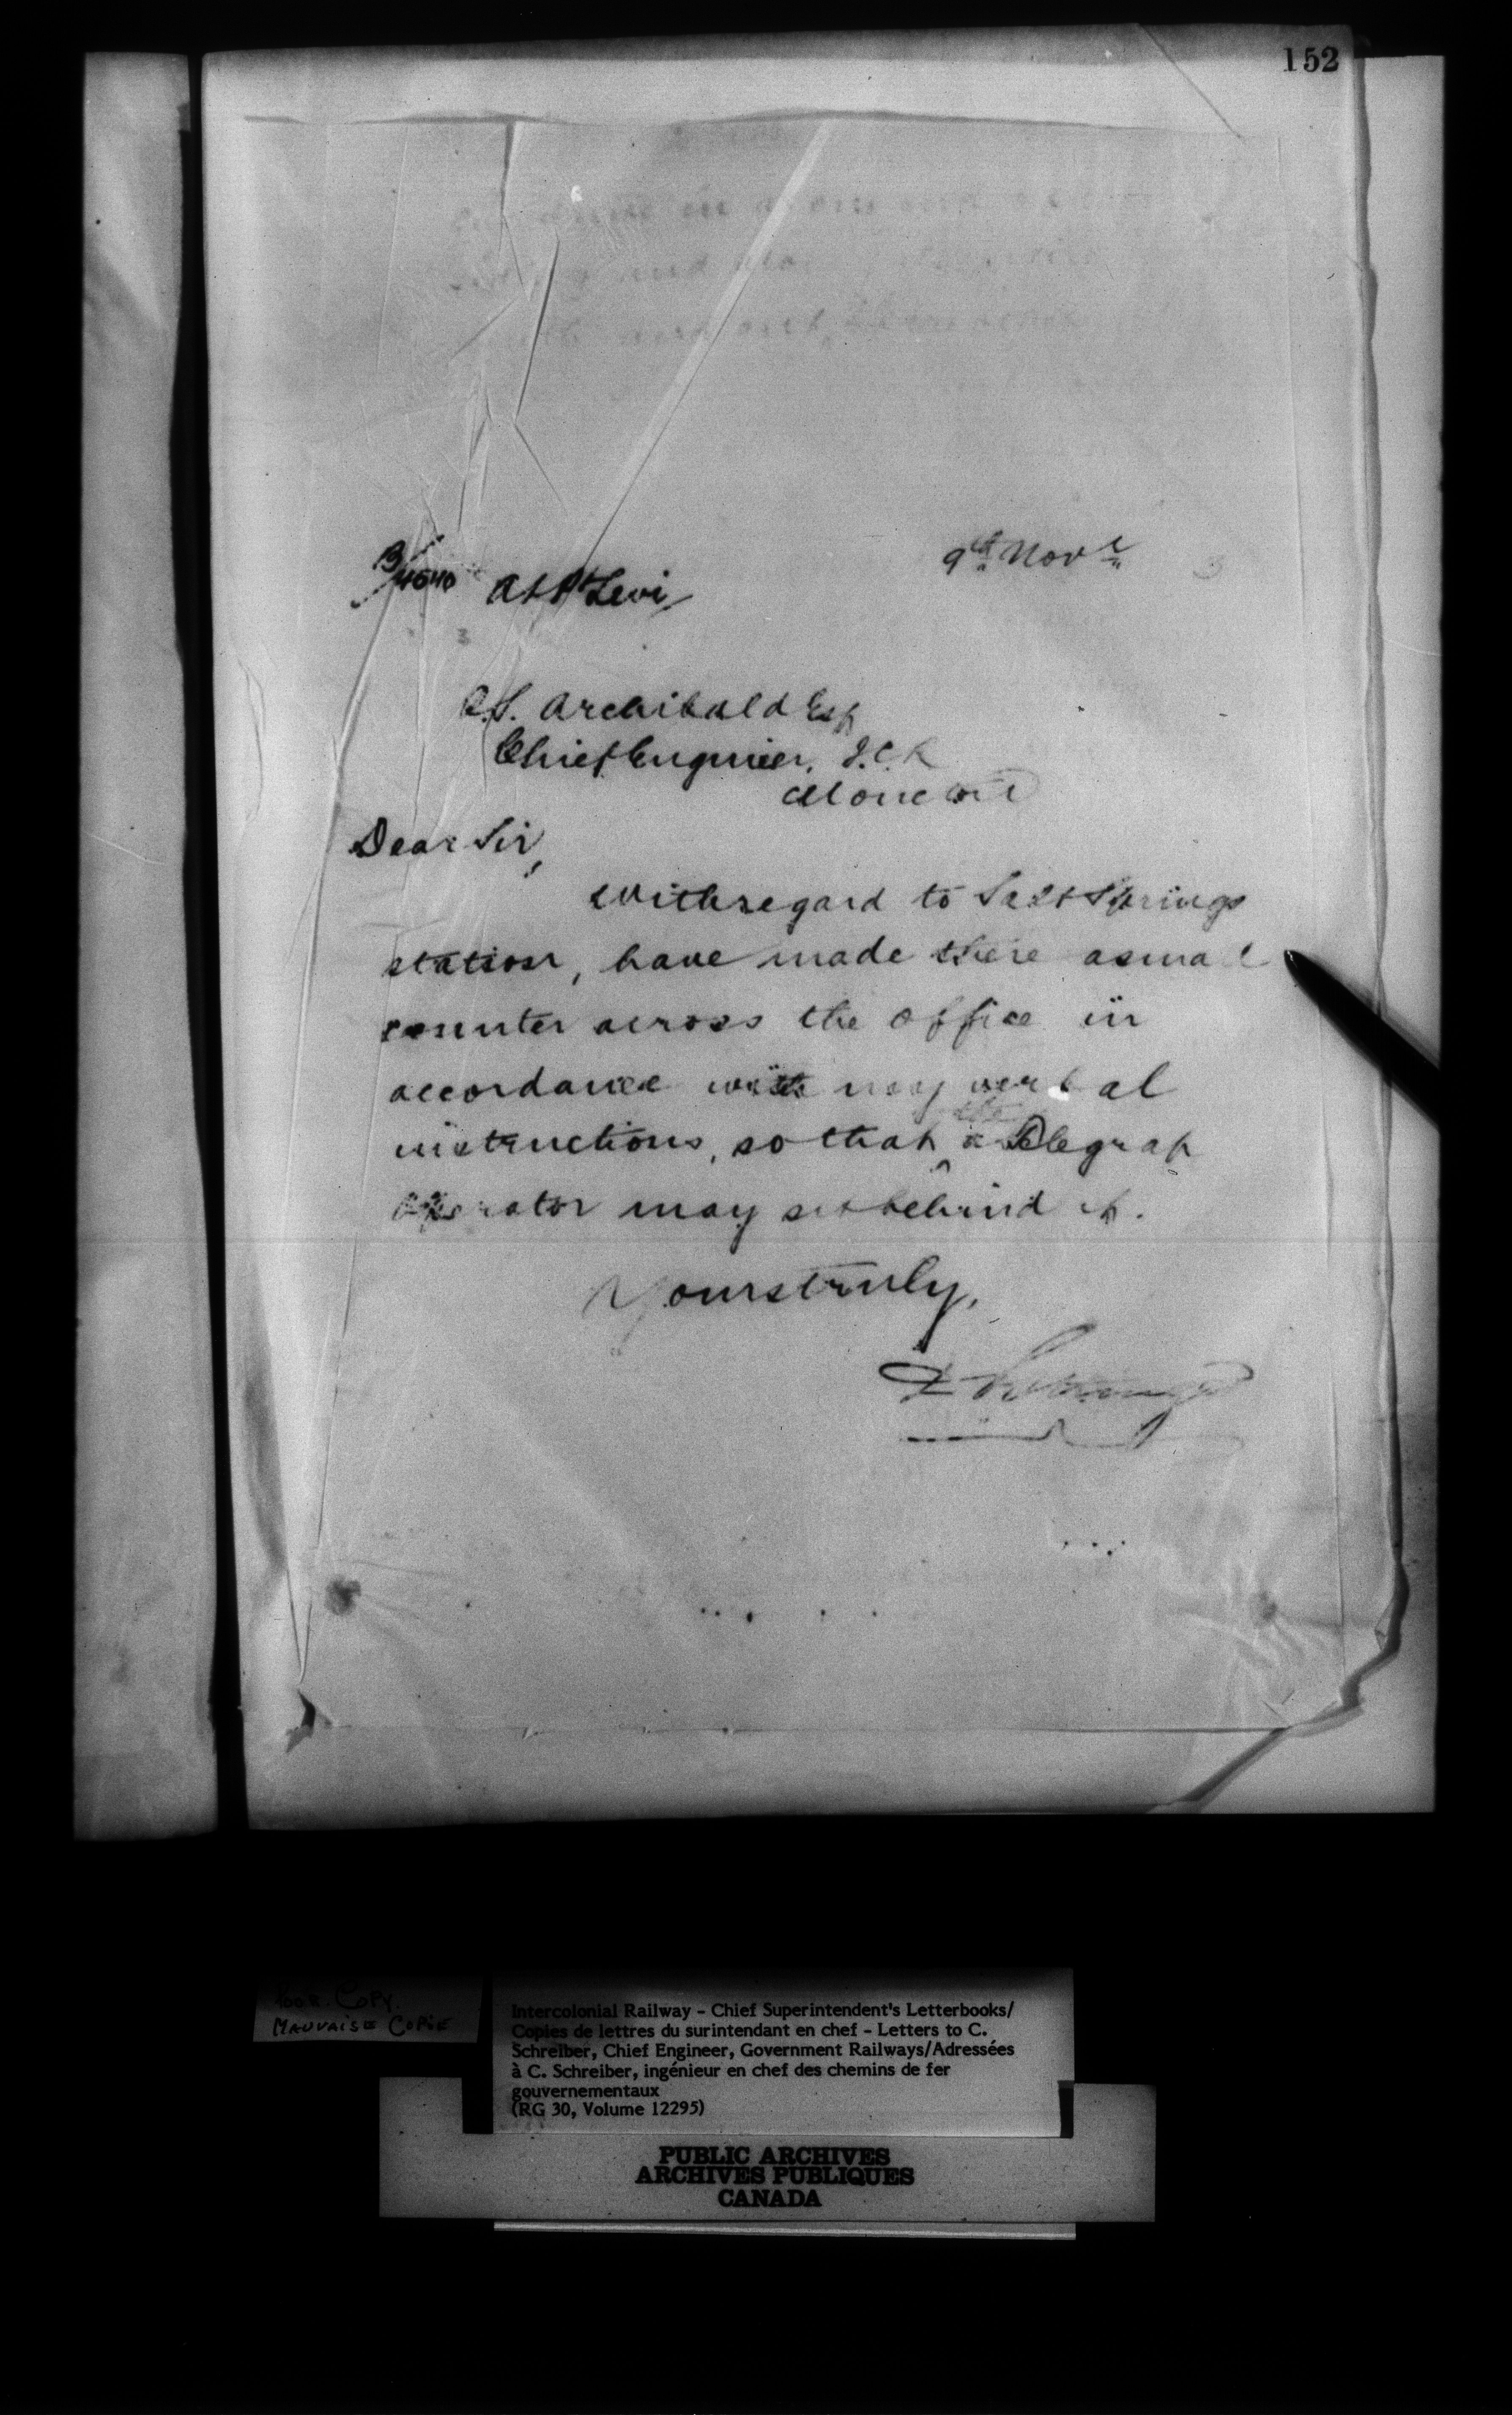 152
9th Novr
B/4540 At Pt Levi
P.S. Archibald Esq
Chief Engineer. I.C.R
Moncton
Dear Sir,
With regard to Salt Springs
station, have made there a small
counter across the office in
accordance with my verbal
instructions, so that the Telegraph
Operator may sit behind it.
Yours truly,
D Pottinger
POOR COPY.
MAUVAISE COPIE
Intercolonial Railway - Chief Superintendent's Letterbooks/
Copies de lettres du surintendant en chef - Letters to C.
Schreiber, Chief Engineer, Government Railways/Adressées
à C. Schreiber, ingénieur en chef des chemins de fer
gouvernementaux
(RG 30, Volume 12295)
PUBLIC ARCHIVES
ARCHIVES PUBLIQUES
CANADA